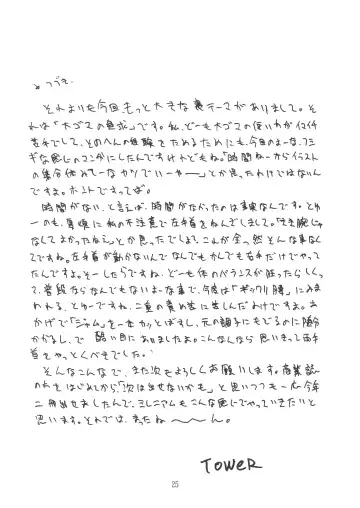 とつづき.
それよりも今回もっと大きな裏テーマがありまして。そ
れは「大ゴマの追求」です。私、どーも大ゴマの使いわかイマイチ
苦手でして、そのへんの経験をためるためにも、今回のよーな、フシ
ギな感じのマンガにしたんですけれどもね。「時間ねーからイラスト
の集合体みてーなカンジでいーやー」とか思ったわけではないん
ですよ。ホントですってば。
時間がない、と言えば、時間がなかったのは事実なんです。とゆ
ーのも、見境に私の不注意で左手首をねんざしまして。「きき腕じゃ
なくてよかったねぇ」とか思ったでしょ。これが全っ然そんな事なく
てですね。左手首が動かないんでなんでもかんでも右手だけでやって
たんですよ。そーしたらですね、どーも体のバランスが狂ったらしくっ
て、普段ならなんでもないよーな事で、今度は「ギックリ腰」にみま
われる、とゆーですね、二重の責め苦に苦しんだわけですよ。お
かげで「ジャム」を一本カッとばすし、元の調子にもどるのに随分
かかるし、で 酷い目にありましたよ。こんなんなら思いきって両手
首をやっとくべきでした。
そんなこんなで、また次もよろしくお願いします。商業誌
のれをはじめてから「次は出せないかも」と思いつつも一応今年
二冊出せましたんで、ミレニアムもこんな感じでやっていきたいと
思います。それでは、またね〜〜ん。
TOWER
25